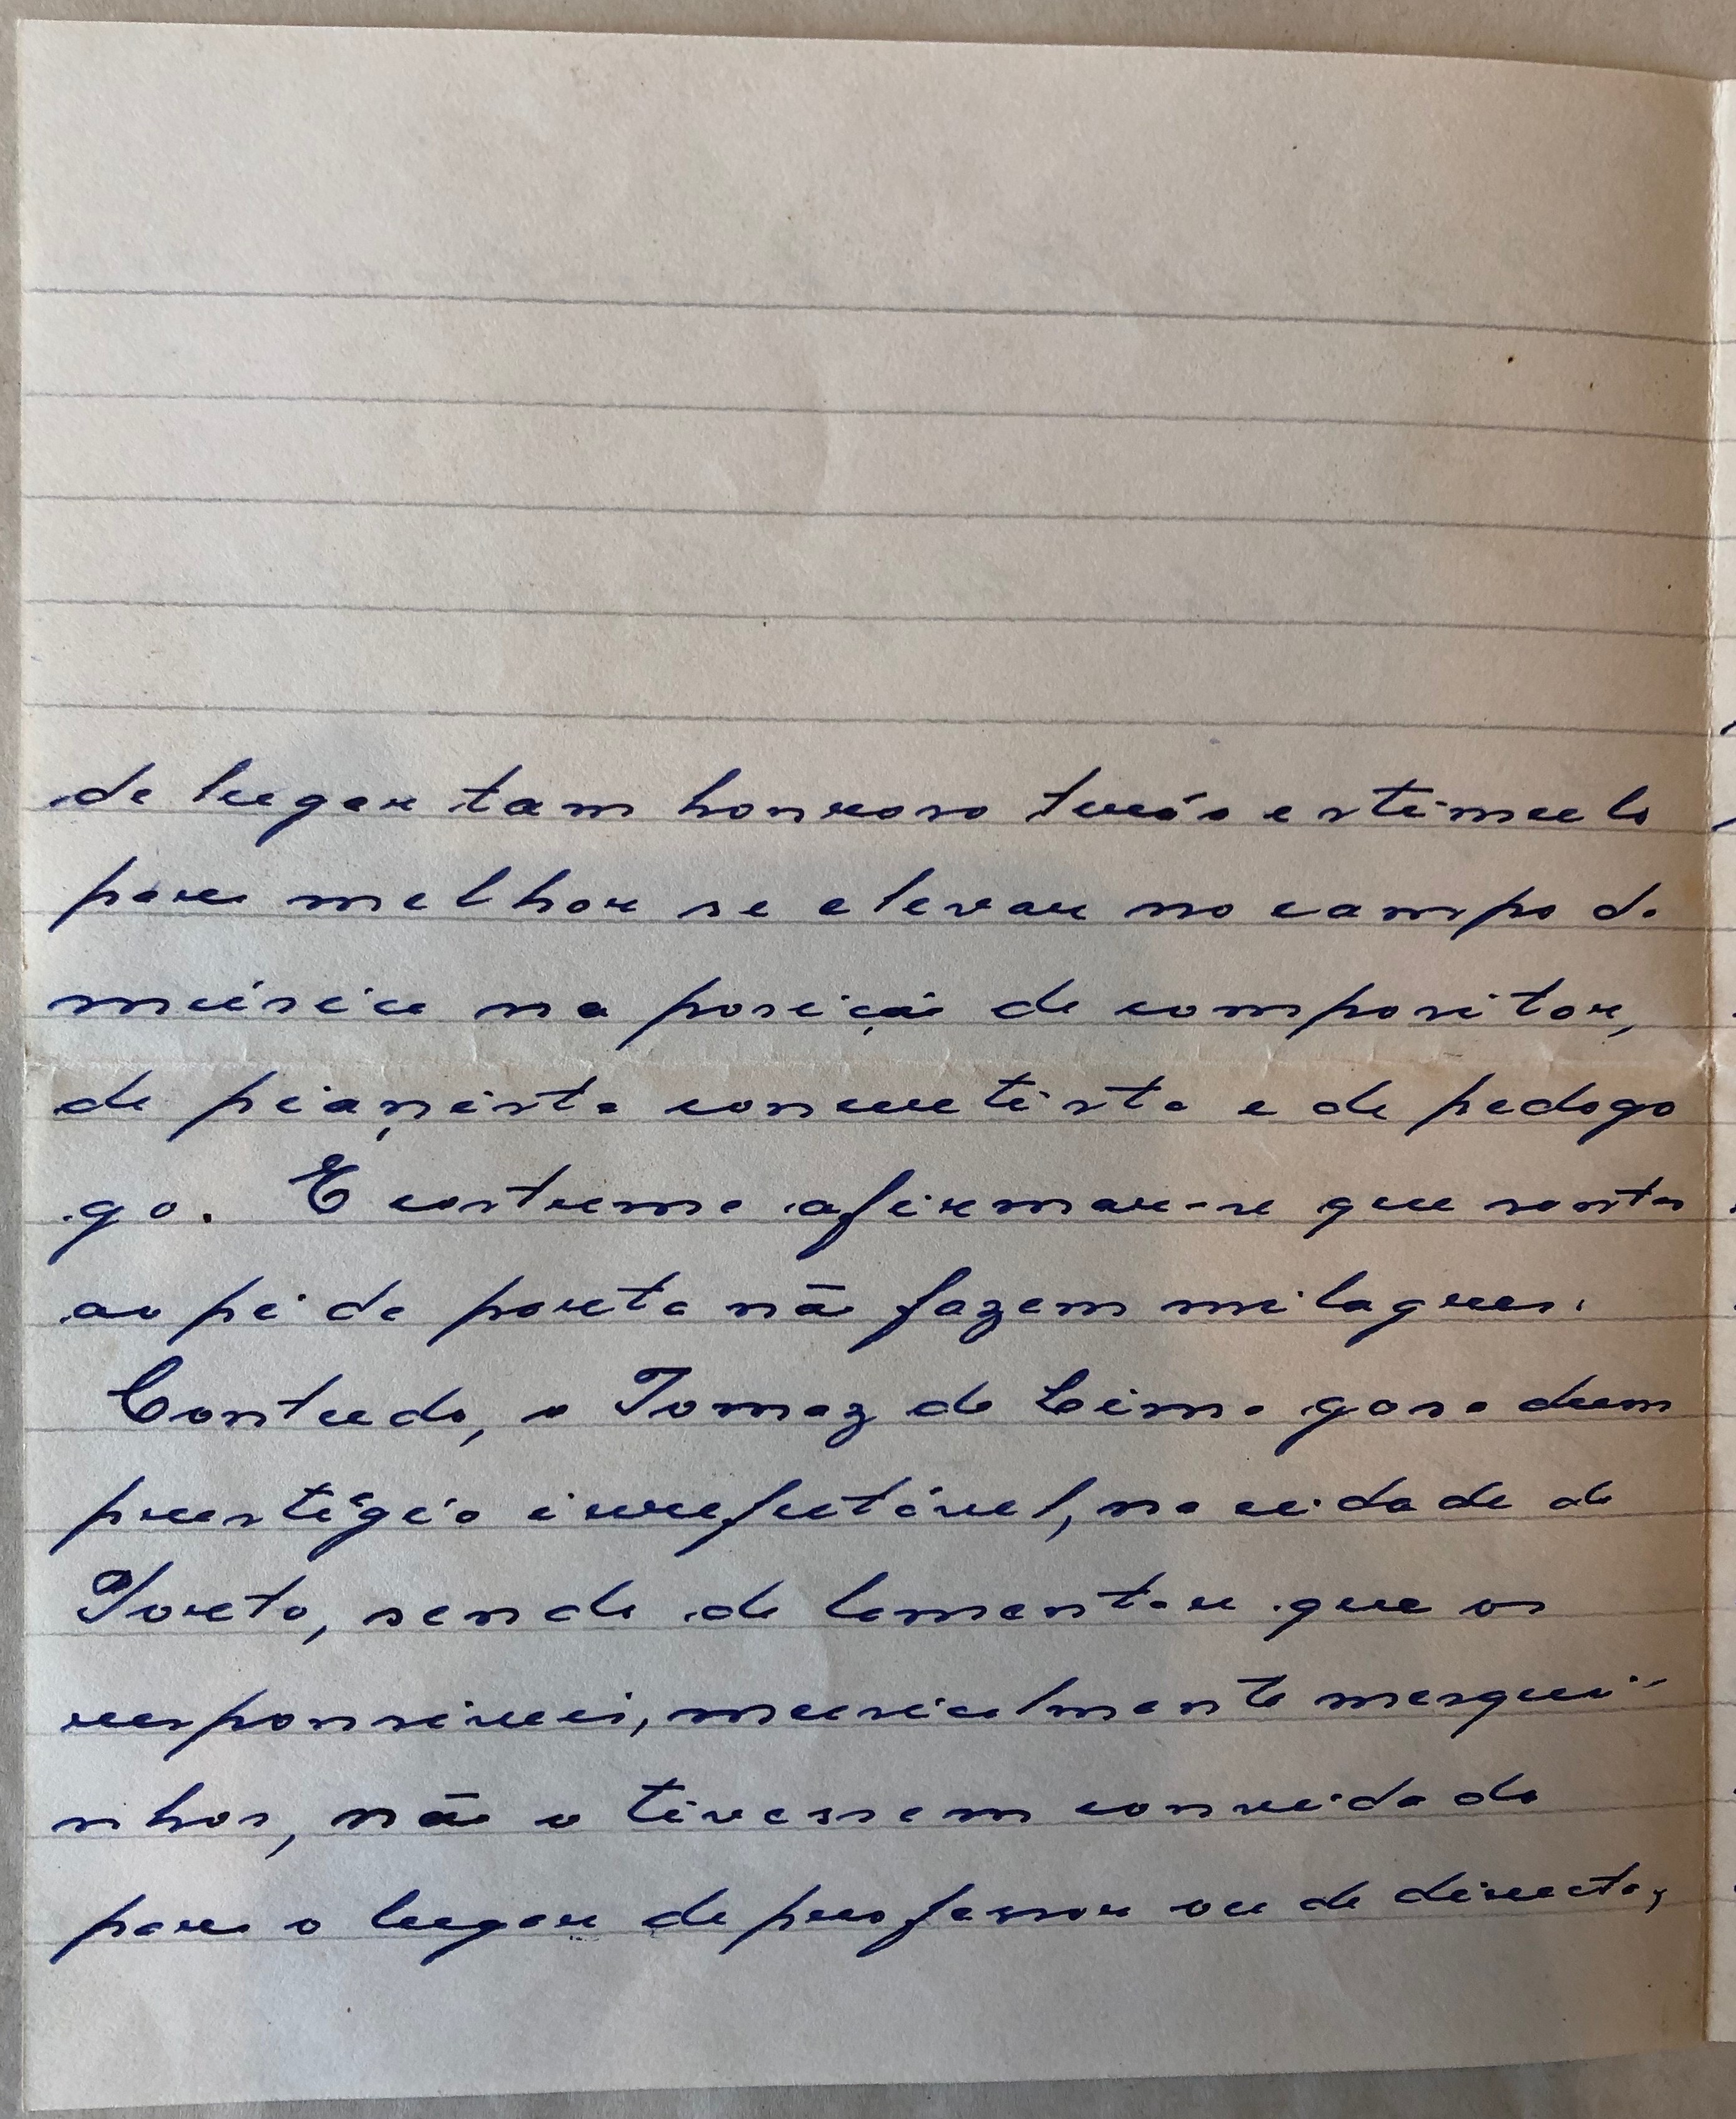 de lugar tam honroso terá o estimulo
para melhor se elevar no campo da
música na posição de compositor,
de pianista concertista e de pedago
go. É costume afirmar-se que santos
ao pé da porta não fazem milagres.
Contudo, o Tomaz de Lima gosa dum
prestígio irrefutável, na cidade do
Porto, sendo de lamentar que os
responsáveis, musicalmente mesqui-
nhos, não o tivessem convidado
para o lugar de professor ou de director,